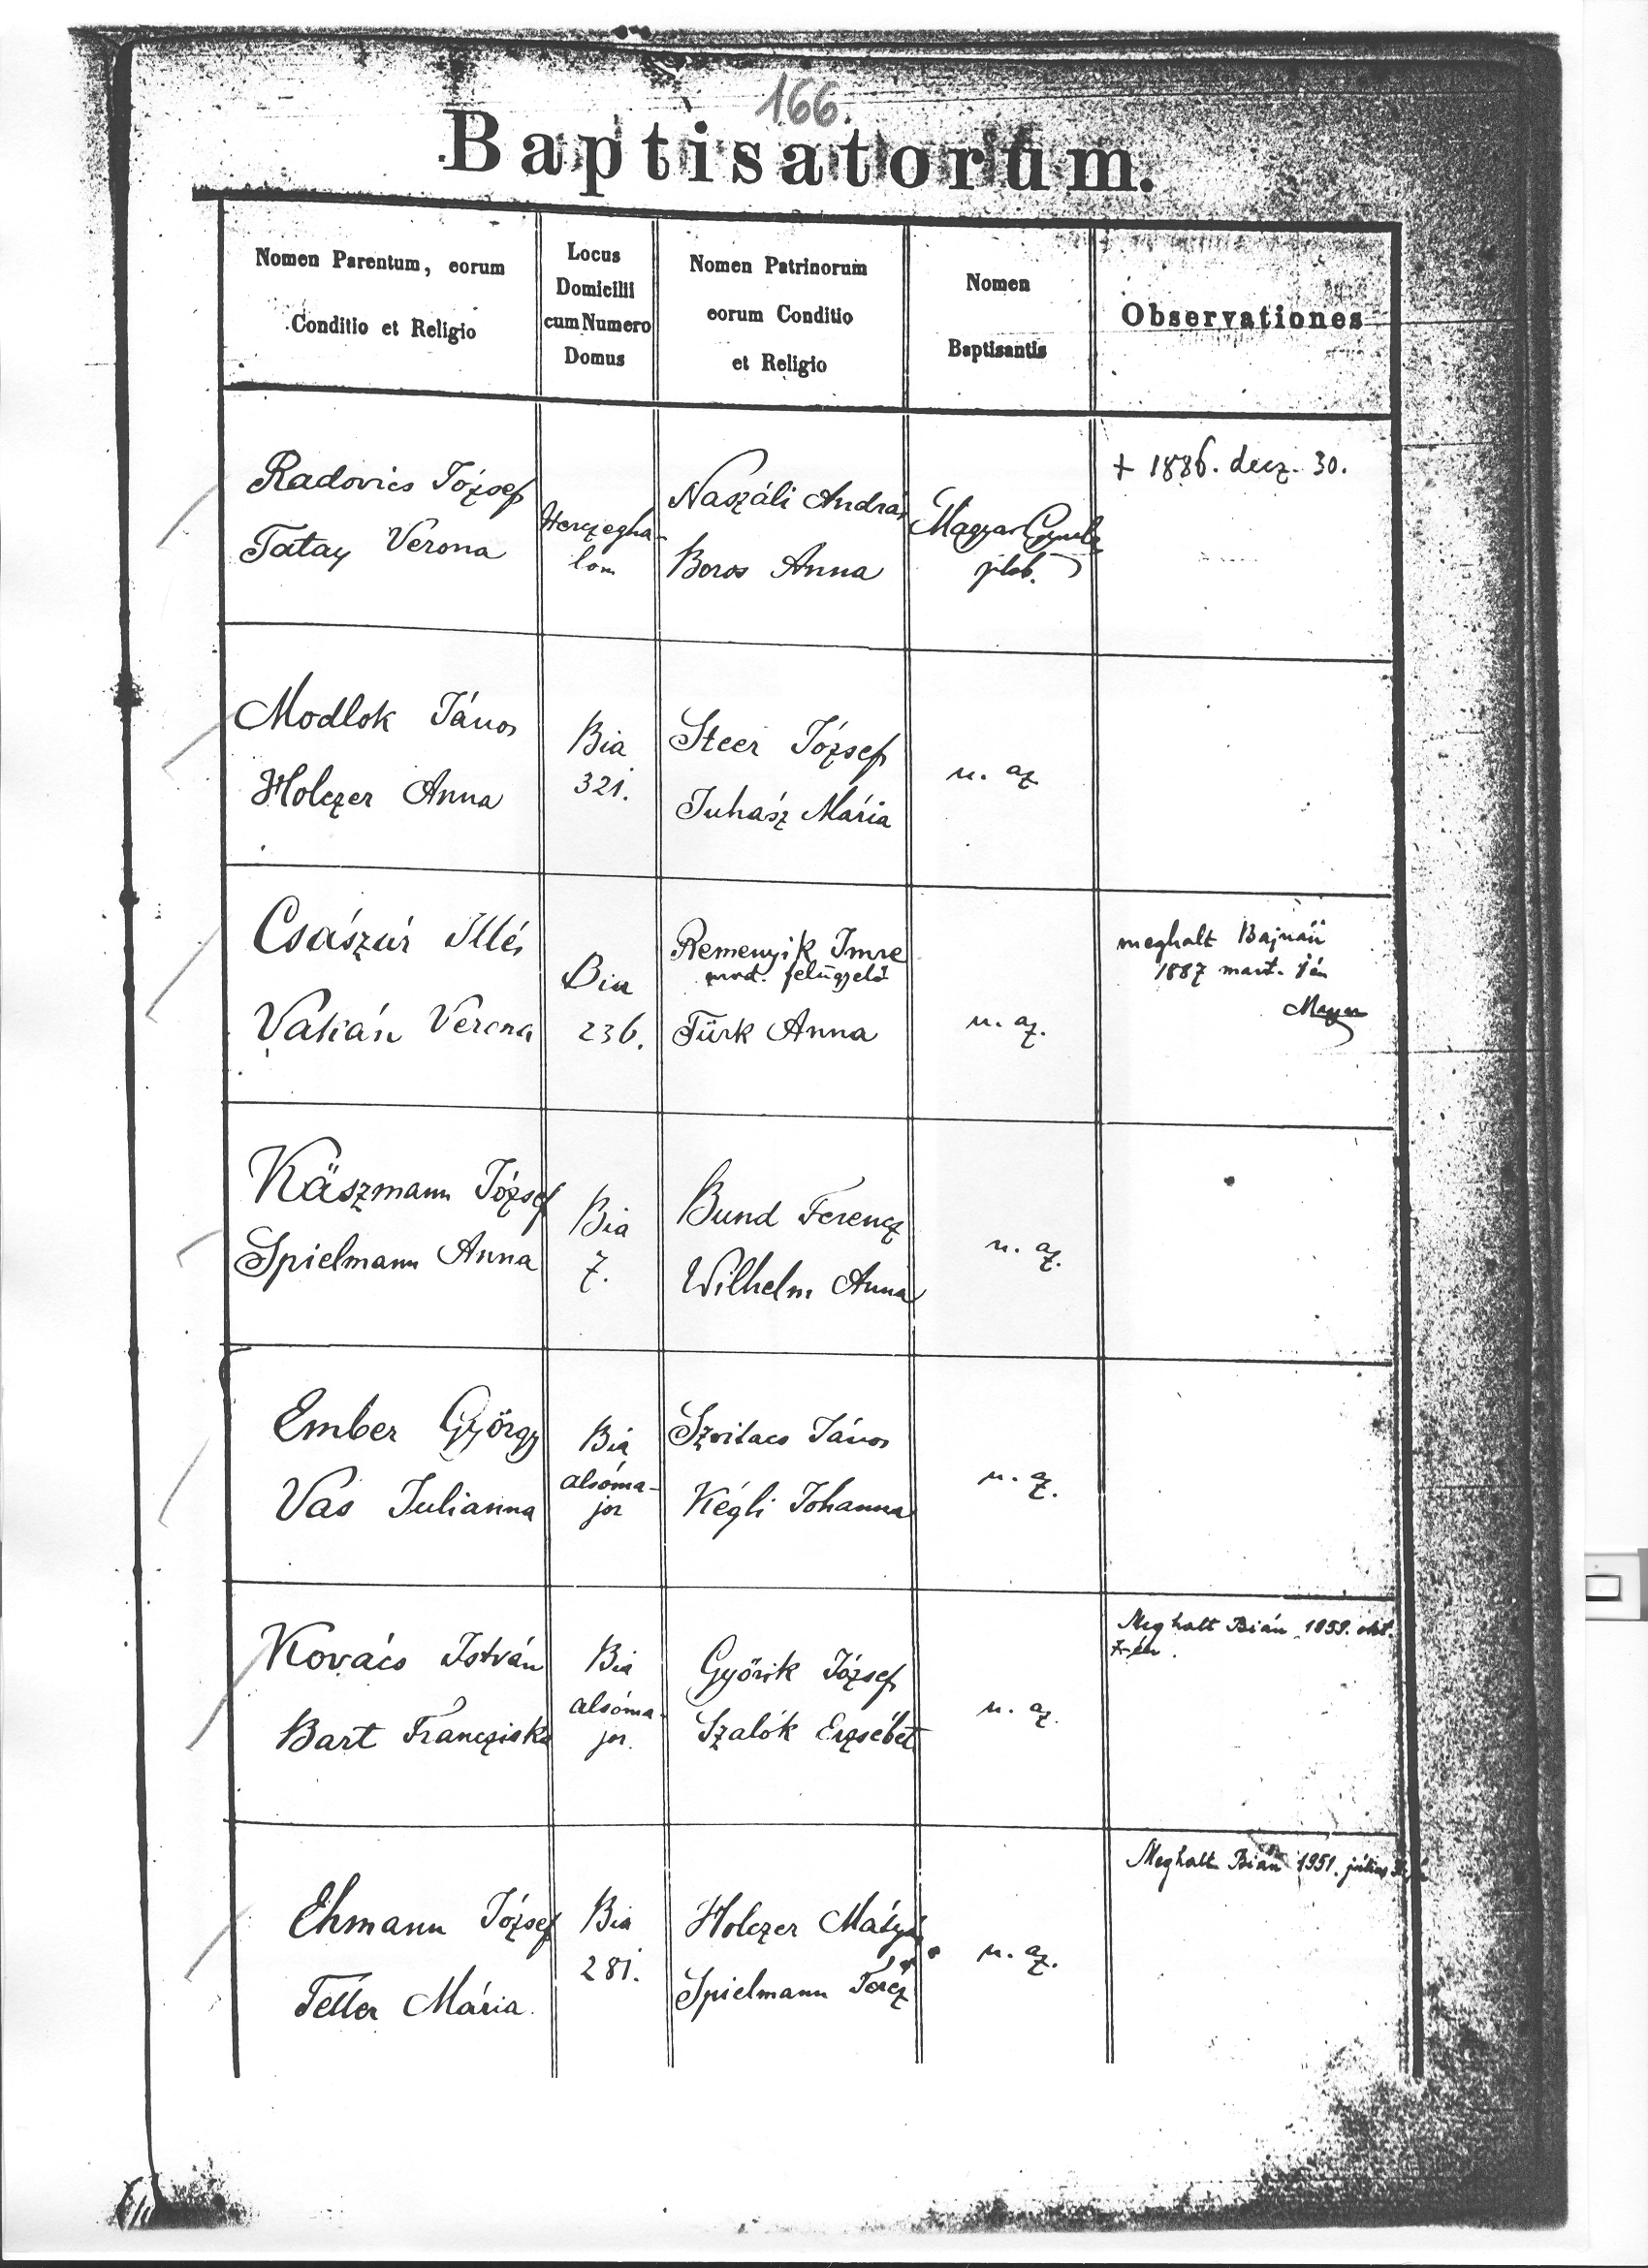 166.
Baptisatorum.
Nomen Parentum, eorum
Conditio et Religio
Locus
Domicilii
cum Numero
Domus
Nomen Patrinorum
eorum Conditio
et Religio
Nomen
Baptisantis
Observationes
Radovics József
Tatay Verona
Herczegha-
lom
Naszáli András
Boros Anna
Magyar
plb.
+ 1886. decz. 30.
Modlok János
Holczer Anna
Bia
321.
Steer József
Juhász Mária
u. az
Császár Illés
Verona
Bia
236.
Remenyik Imre
felügyelő
Türk Anna
u. az.
meghalt
1887 mart. én
Käszmann József
Spielmann Anna
Bia
7.
Bund Ferencz
Wilhelm Anna
u. az.
Ember György
Vas Julianna
Bia
alsóma-
jor
Szvitacs János
Kégli Johanna
u. az.
Kovács István
Bart Francziska
Bia
alsóma-
jor.
Győrik József
Szalók Erzsébet
u. az.
Meghalt Bián okt.
7-én.
Ehmann József
Feller Mária.
Bia
281.
Holczer Mátyás
Spielmann Teréz
u. az.
Meghalt Bián 1951. július